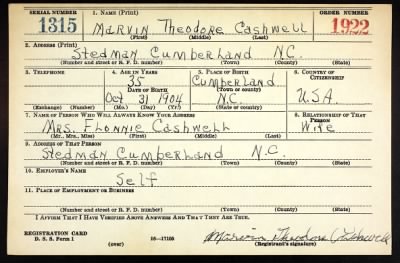 SERIAL NUMBER 1. NAME (Print) ORDER NUMBER
1315 Marvin Theodore Cashwell 1922
(First) (Middle) (Last)
2. ADDRESS (Print)
Stedman Cumberland N.C.
(Number and street or R. F. D. number) (Town) (County) (State)
3. TELEPHONE 4. AGE IN YEARS 5. PLACE OF BIRTH 6. COUNTRY OF CITIZENSHIP
35 Cumberland
DATE OF BIRTH (Town or county)
Oct 31 1904 N.C. U.S.A.
(Exchange) (Number) (Mo.) (Day) (Yr.) (State or country)
7. NAME OF PERSON WHO WILL ALWAYS KNOW YOUR ADDRESS 8. RELATIONSHIP OF THAT PERSON
Mrs. Flonnie Cashwell Wife
(Mr., Mrs., Miss) (First) (Middle) (Last)
9. ADDRESS OF THAT PERSON
Stedman Cumberland N.C.
(Number and street or R. F. D. number) (Town) (County) (State)
10. EMPLOYER'S NAME
Self
11. PLACE OF EMPLOYMENT OR BUSINESS
(Number and street or R. F. D. number) (Town) (County) (State)
I AFFIRM THAT I HAVE VERIFIED ABOVE ANSWERS AND THAT THEY ARE TRUE.
REGISTRATION CARD
D. S. S. Form 1 (over) 16—17105 Marvin Theodore Cashwell
(Registrant's signature)